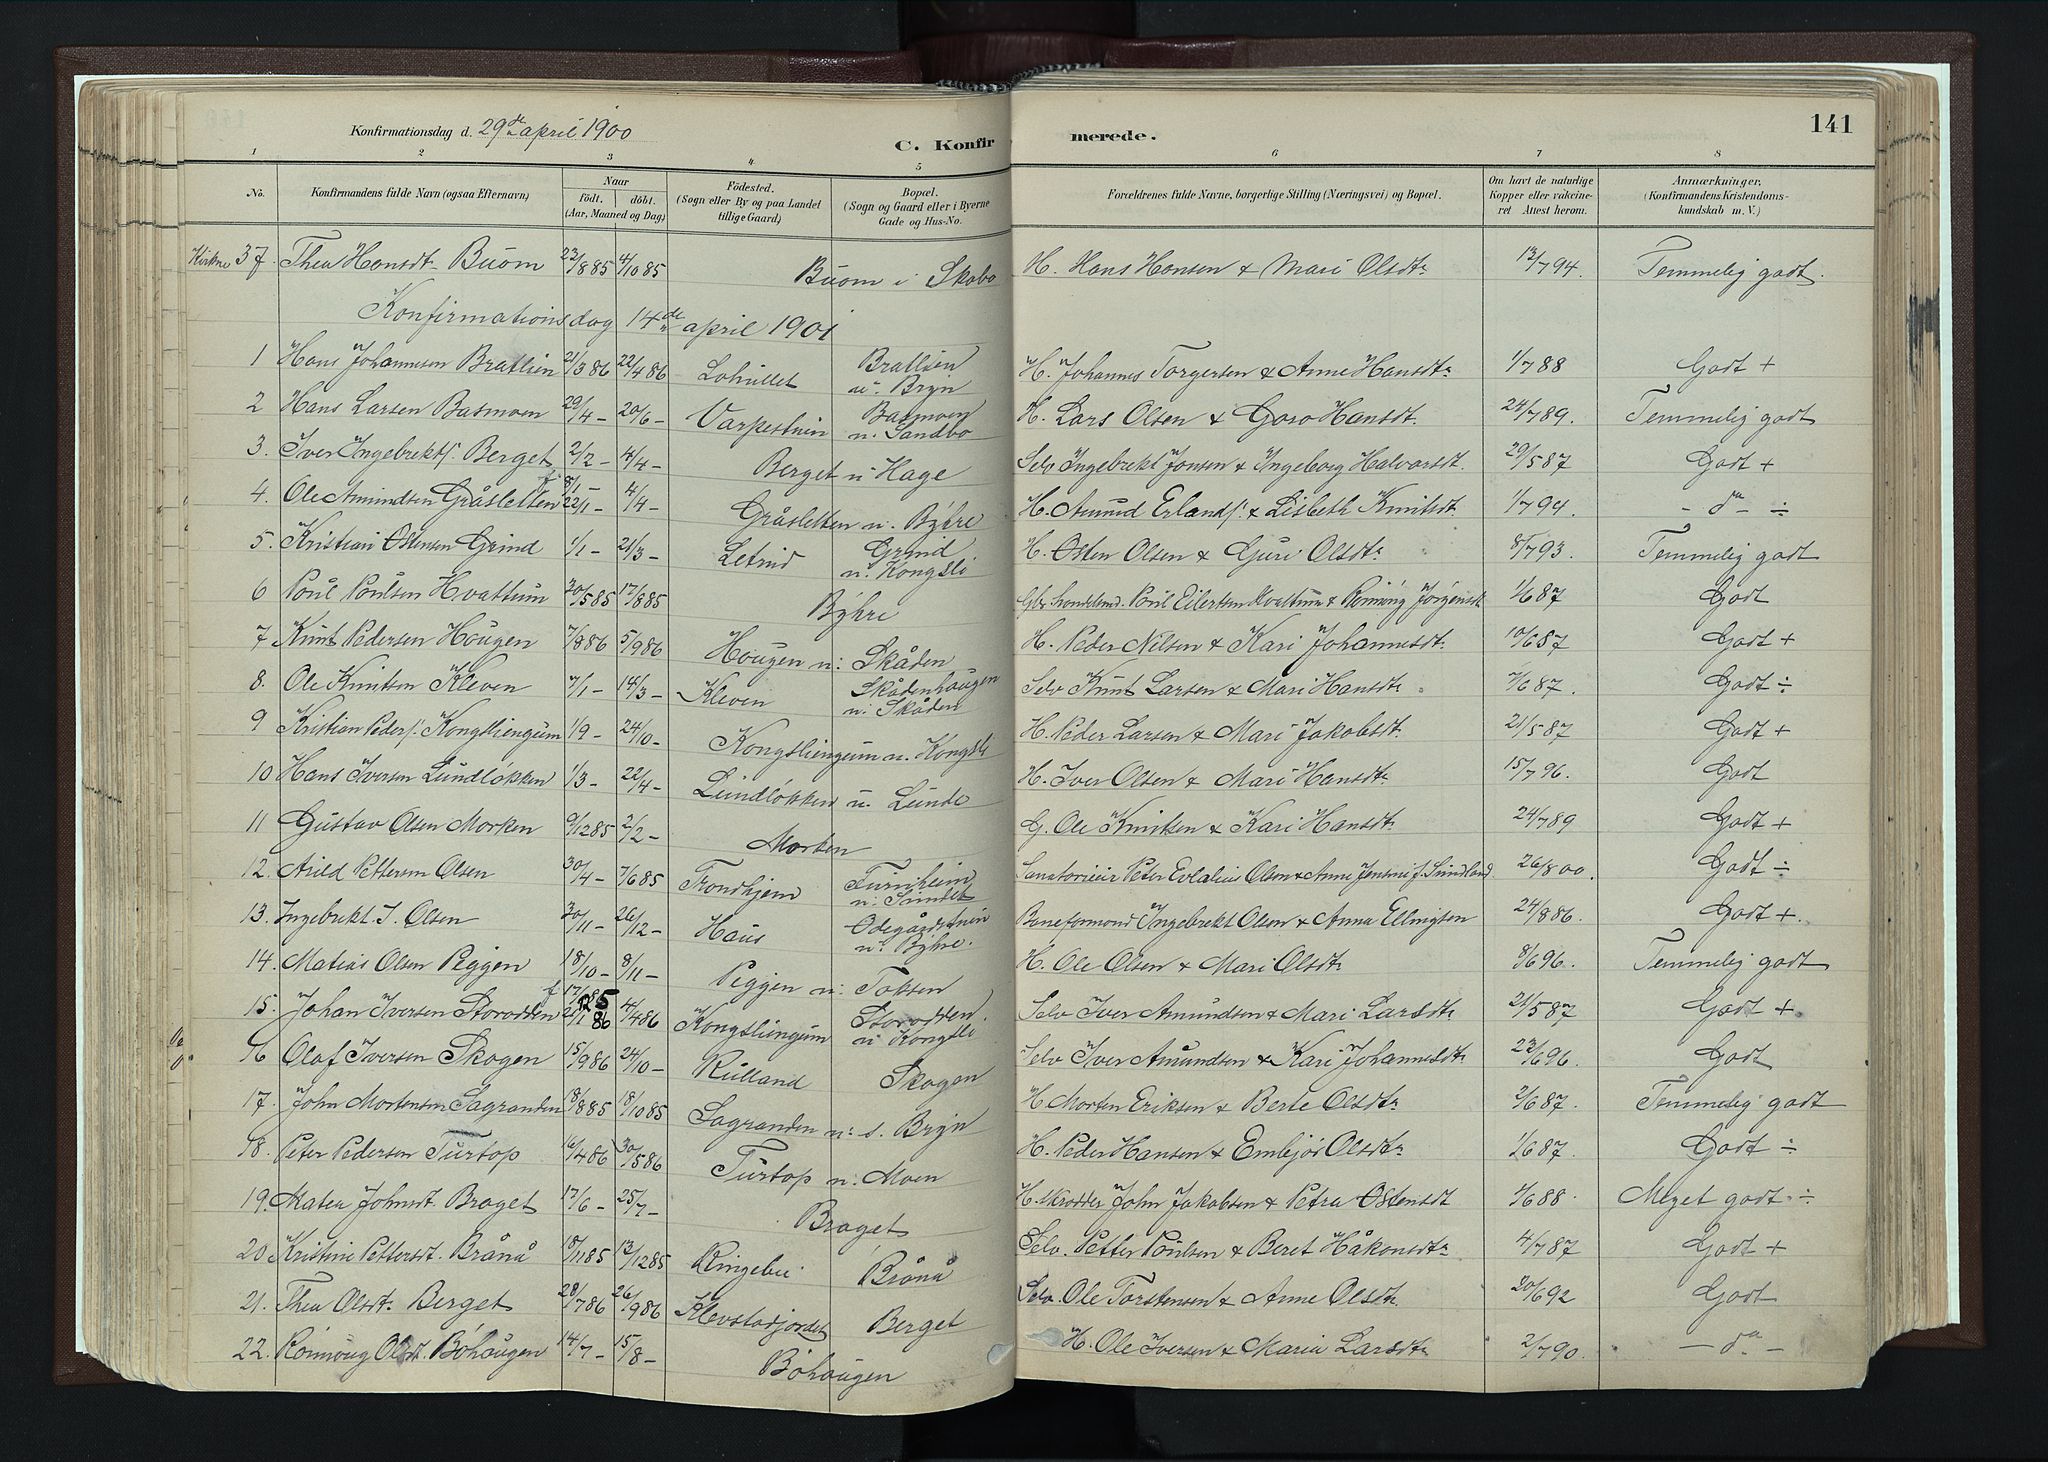 Konfirmationsdag d. 29de april 1900
C. Konfirmerede. 141
1 2 3 4 5 6 7 8
No. Konfirmandens fulde Navn (ogsaa Efternavn) Naar födt. döbt. (Aar, Maaned og Dag) Födested. (Sogn eller By og paa Landet tillige Gaard) Bopæl. (Sogn og Gaard eller i Byerne Gade og Hus-No. Forældrenes fulde Navne, borgerlige Stilling (Næringsvei) og Bopæl. Om havt de naturlige Kopper eller vakcineret Attest herom. Anmærkninger. (Konfirmandens Kristendomskundskab m. V.)
37. Thea Hansdt. Buom 23/8 85 4/10 85 Buom i Skabo H. Hans Hansen & Mari Olsdtr 12/7 94. Temmelig godt.
Konfirmationsdag 14de april 1901
1 Hans Johannesen Bratlien 21/3 86 22/4 86 Lohullet Bratlien u. Bryn H. Johannes Torgersen & Anne Hansdtr 1/7 88 Godt +
2 Hans Larsen Basmoen 29/4 – 20/6 – Varpestuin Basmoen u. Sandbo H. Lars Olsen & Goro Hansdt. 24/7 89. Temmelig godt
3. Iver Ingebrekts. Berget 2/2 – 4/4 – Berget u. Hage Selv Ingebrekt Jonsen & Ingeborg Halvorsdt. 29/5 87 Godt +
4. Ole Amundsen Gråsletten 22/1 – 4/4 – Gråsletten u. Byhre H. Amund Erlands. & Lisbeth Knutsdt 1/7 94. – do – ÷
5. Kristian Ostensen Grind 1/1 – 21/3 – Letrud Grind u. Kongsli H. Osten Olsen & Guri Olsdtr 8/7 93. Temmelig godt
6 Poul Poulsen Hvattum 30/5 85 17/8 85 Byhre Poul Eilertsen Hvattum & Rönnög Jörgensdt 1/6 87 Godt
7 Knut Pedersen Hougen 7/8 86 5/9 86 Hougen u. Skåden H. Peder Nilsen & Kari Johannesdtr 10/6 87 Godt +
8. Ole Knutsen Kleven 7/1 – 14/3 – Kleven Skådenhaugen u. Skåden Selv Knut Larsen & Mari Hansdtr 7/6 87. Godt ÷
9 Kristian Peders. Kongsliengum 1/9 – 24/10 – Kongsliengum u. Kongsli H. Peder Larsen & Mari Jakobsdt. 21/5 87 Godt +
10 Hans Iversen Lundlökken 1/3 – 22/4 – Lundlökken u. Lunde H. Iver Olsen & Mari Hansdtr 15/7 96. Godt
11 Gustav Olsen Morken 9/12 85 2/2 – Morken G. Ole Knutsen & Kari Hansdtr 24/7 89 Godt +
12. Arild Pettersen Olsen 30/4 – 7/6 85 Trondhjem Furuheim u. Sundet Peter Evlalius Olsen & Anne Jentine f. Sundland 26/8 00. Godt ÷
13. Ingebrekt I. Olsen 30/11 – 26/12 – Haus Ödegårdstuin u. Byhre. Baneformand Ingebrekt Olsen & Anna Ellingsen 24/8 86. Godt +.
14. Matias Olsen Peggen 18/10 – 8/11 – Peggen u. Toksen H. Ole Olsen & Mari Olsdtr 8/6 96. Temmelig godt
15. Johan Iversen Storodden 4/4 86 Kongsliengum Storodden. u. Kongsli Selv Iver Amundsen & Mari Larsdtr 21/5 87 Godt +
16 Olaf Iversen Skogen 15/9 86 24/10 – Rulland Skogen Selv Iver Amundsen & Kari Johannesdtr 23/6 96. Godt
17. John Mortensen Sagranden 18/8 85 18/10 85 Sagranden u. s. Bryn H. Morten Eriksen & Berte Olsdtr 2/6 87. Temmelig godt
18. Peter Pedersen Turtop 16/4 86 30/5 86 Turtop u. Moen H. Peder Hansen & Embjör Olsdtr 1/6 87. Godt ÷
19. Matea Johnsdt. Braget 17/6 – 25/7 – Braget H. Skrædder John Jakobsen & Petra Ostensdt 7/6 88. Meget godt ÷
20 Kristine Pettersdt. Brånå 18/11 85 13/12 85 Ringebu Brånå Selv. Petter Poulsen & Beret Håkonsdtr 4/7 87 Godt +
21. Thea Olsdtr Berget 28/7 86 26/9 86 Klevstadjordet Berget Selv. Ole Torstensen & Anne Olsdtr 20/6 92 Godt
22. Rönnoug Olsdt. Böhougen 14/7 – 15/8 – Böhougen H. Ole Iversen & Maria Larsdtr 2/7 90. – do –